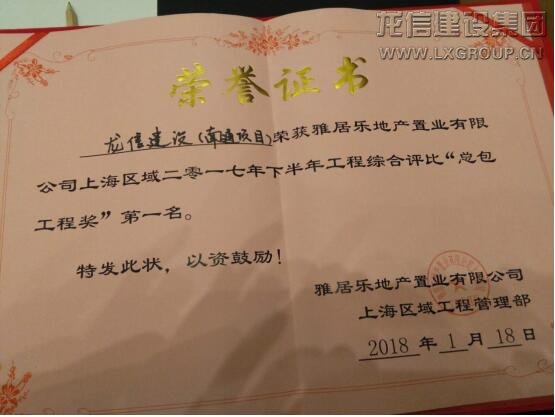 龙信建设集团
WWW.LXGROUP.CN
荣誉证书
龙信建设(南通项目)荣获雅居乐地产置业有限
公司上海区域二零一七年下半年工程综合评比“总包
工程奖”第一名。
特发此状，以资鼓励！
雅居乐地产置业有限公司
上海区域工程管理部
2018 年 1 月 18 日